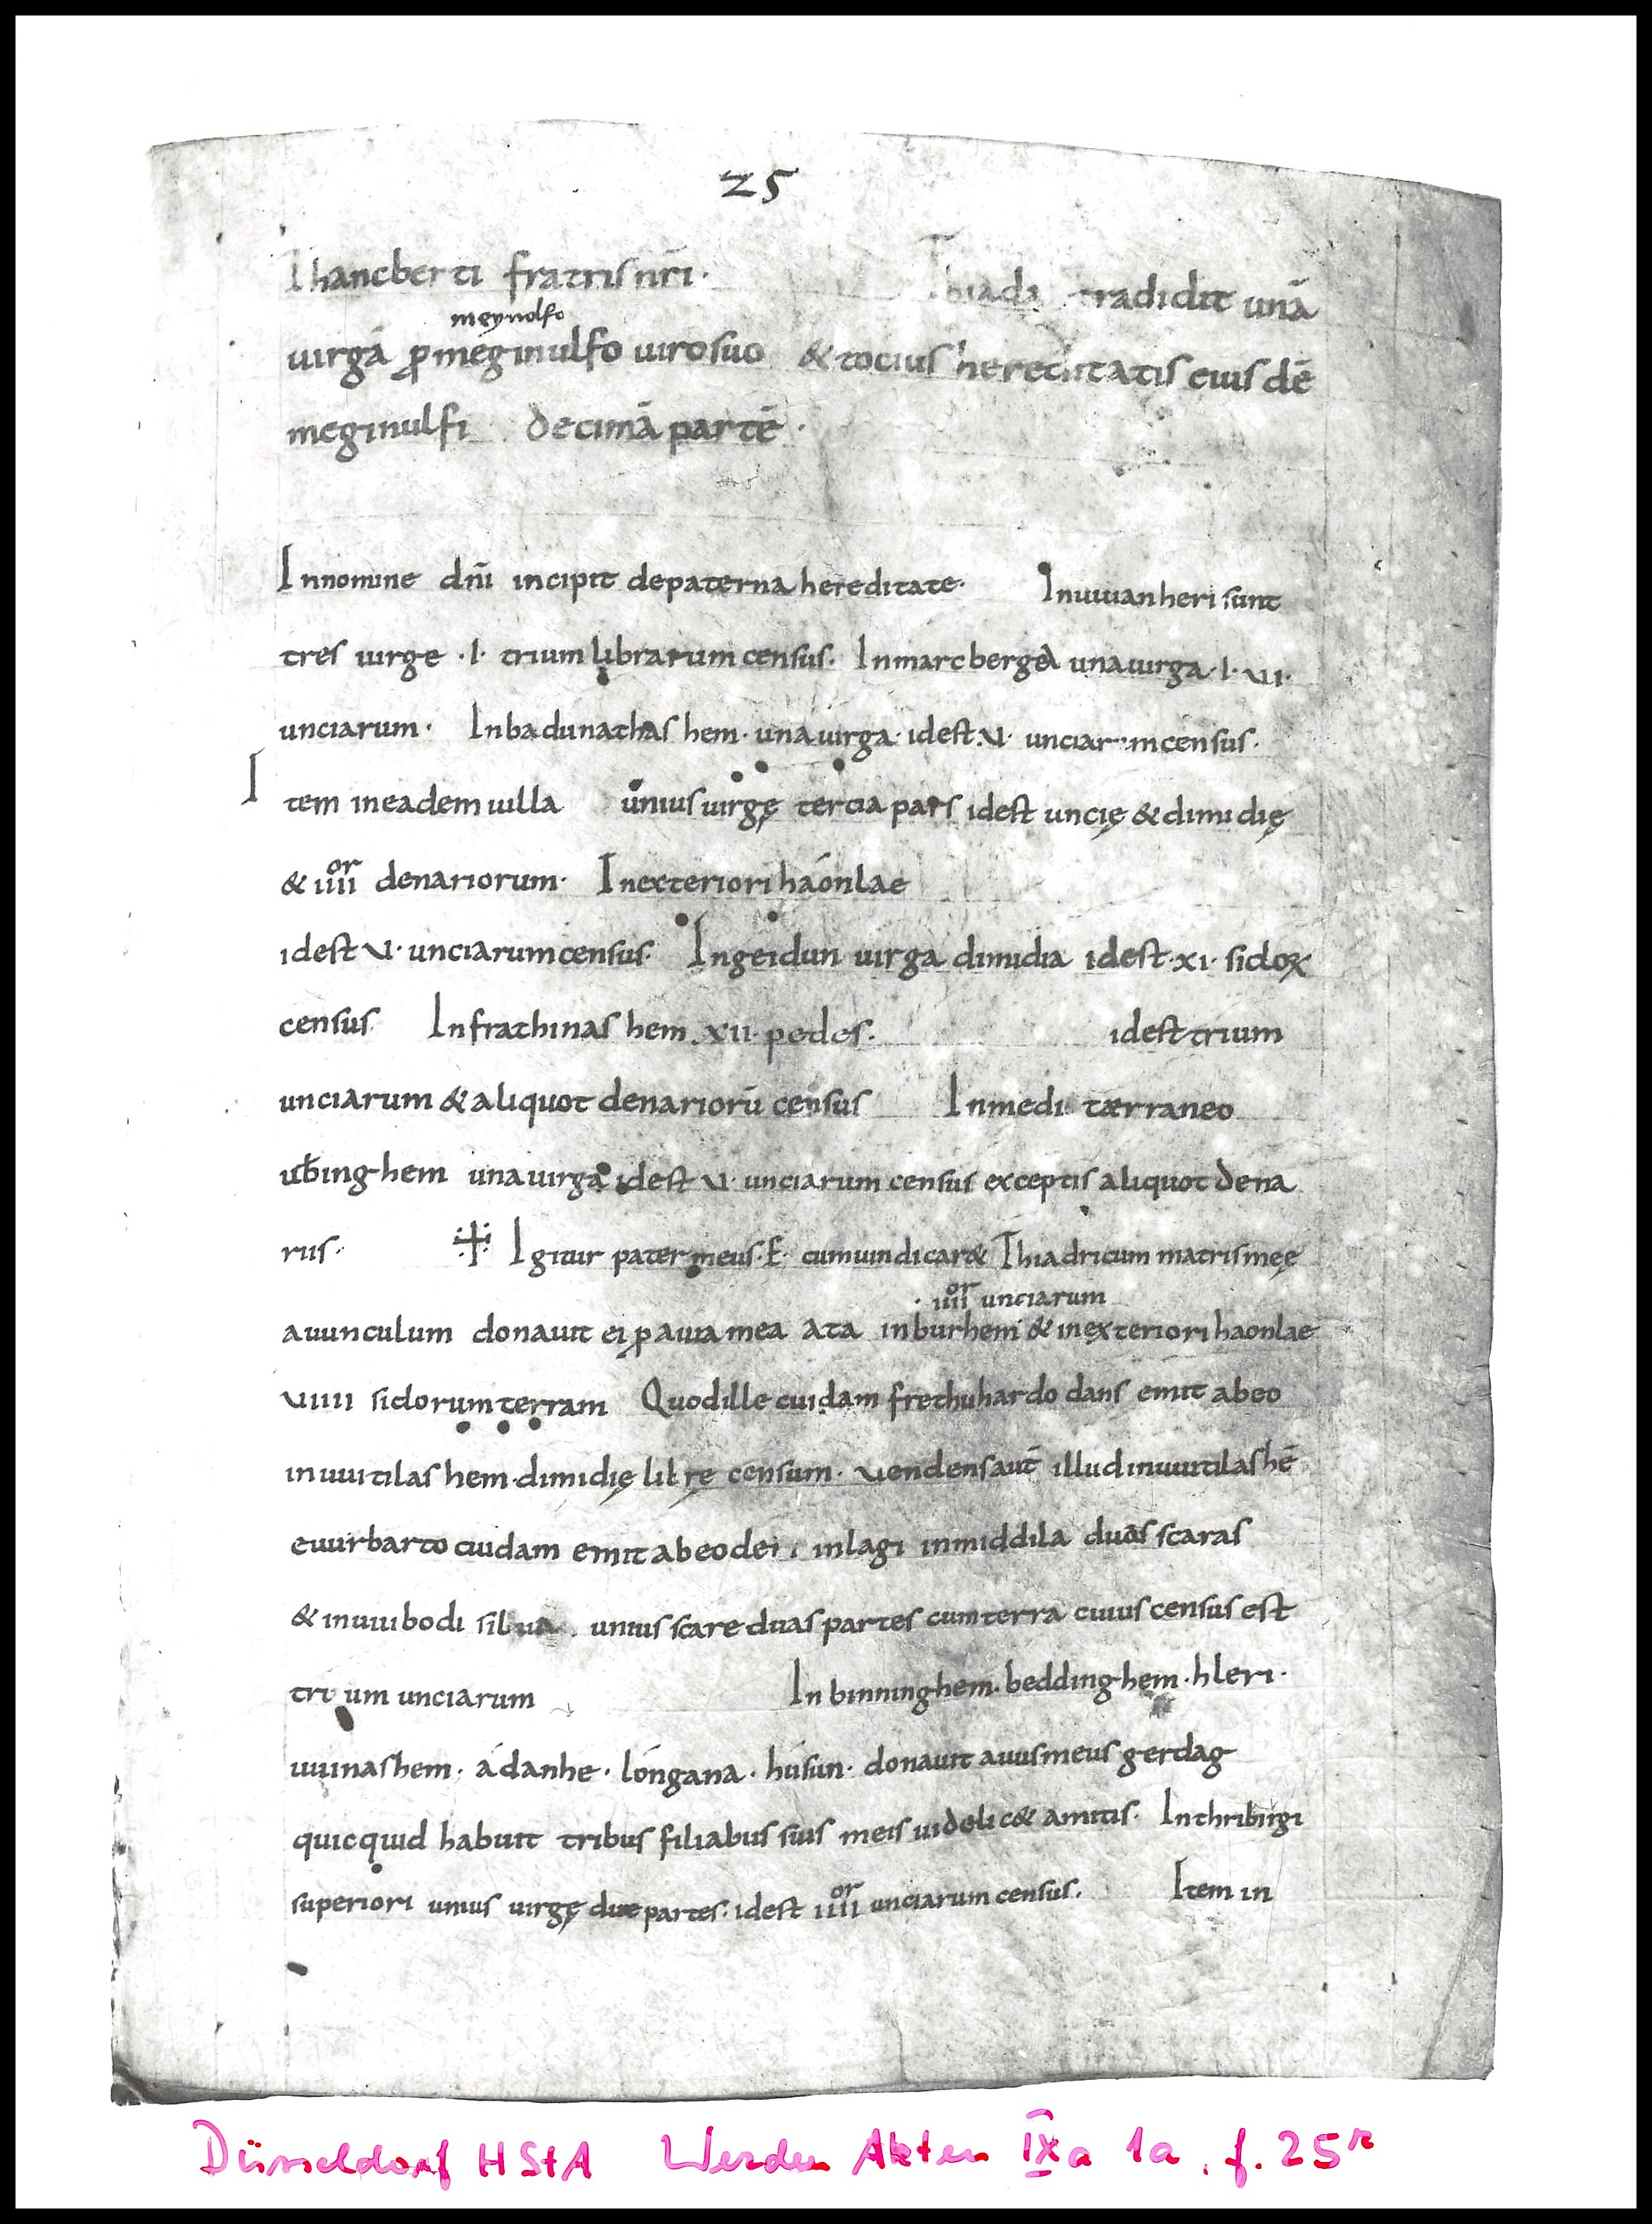 25
Thancberti fratris nr̄i·
Thiada tradidit unā
meynolfo
uirgā ꝓ meginulfo uiro suo & tocius hereditatis eius dē
meginulfi decimā partē·
In nomine dn̄i incipit de paterna hereditate· In uuanheri sunt
tres uirge ·I· trium librarum census· In marcberge una uirga ·I· VI·
unciarum· In badunathas hem· una uirga· idest V· unciarum census·
Item in eadem uilla unius uirgę tercia pars idest uncię & dimidię
& IIIIor denariorum· In exteriori háonlae
idest V· unciarum census· In geidun uirga dimidia idest·XI· siclorꝝ
census In frathinas hem·XII· pedes· idest trium
unciarum & aliquot denariorū census In medi terraneo
ubinghem una uirga idest V· unciarum census exceptis aliquot dena
riis· Igitur pater meus·E· cum uindicar& Thiadricum matris męę
IIIIor unciarum
auunculum donauit ei ꝓ auia mea Ata in burhem & in exteriori haonlae
VIIII siclorum terram Quod ille cuidam frethuhardo dans emit ab eo
in uuitilas hem·dimidię librę censum· uendens aut̄ illud in uuitilas hē
euurbarto cuidam emit ab eo in lagi in middila duas scaras
& in uuibodi silua unius scare duas partes cum terra cuius census est
trium unciarum In binninghem·beddinghem·hleri·
uuinashem·ádanhe·lóngana·húsun· donauit auus meus gerdag
quicquid habuit tribus filiabus suis meis uidelic& amitis· In thribirgi
superiori unius uirgę due partes· idest IIIIor unciarum census· Item in
Düsseldorf HStA Werden Akten IX a 1a, f. 25r